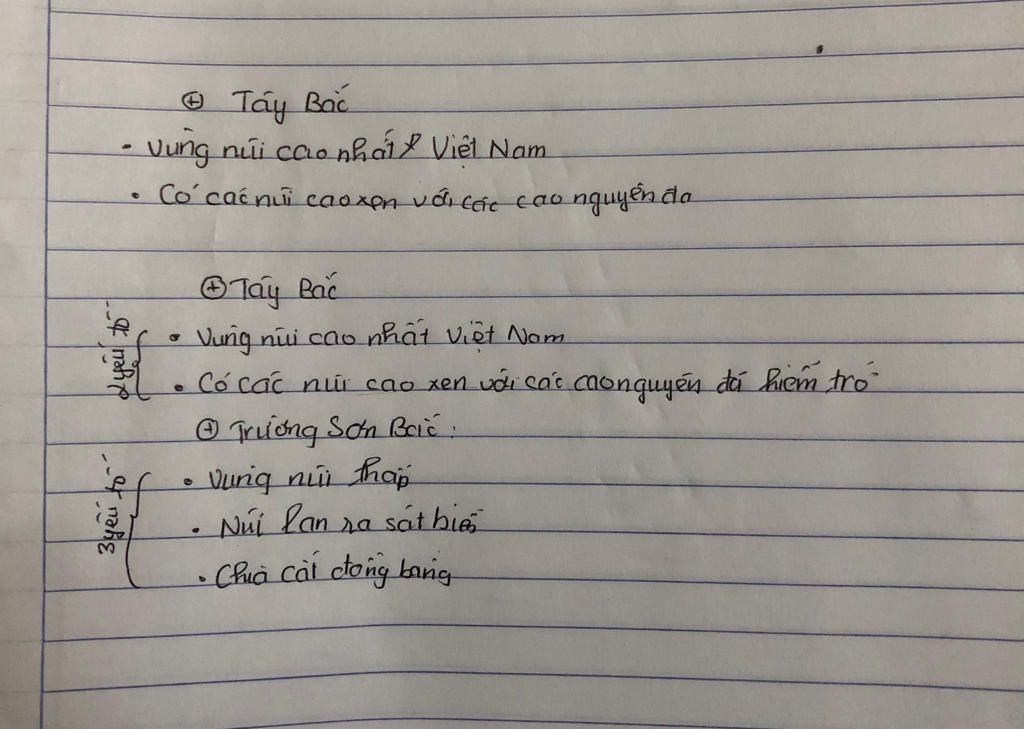 ⊕ Tây Bắc
- Vùng núi cao nhất Việt Nam
• Có các núi cao xen với các cao nguyên đá
⊕ Tây Bắc
2 yếu tố
• Vùng núi cao nhất Việt Nam
• Có các núi cao xen với các cao nguyên đá hiểm trở
⊕ Trường Sơn Bắc:
3 yếu tố
• Vùng núi thấp
• Núi lan ra sát biển
• Chia cắt đồng bằng